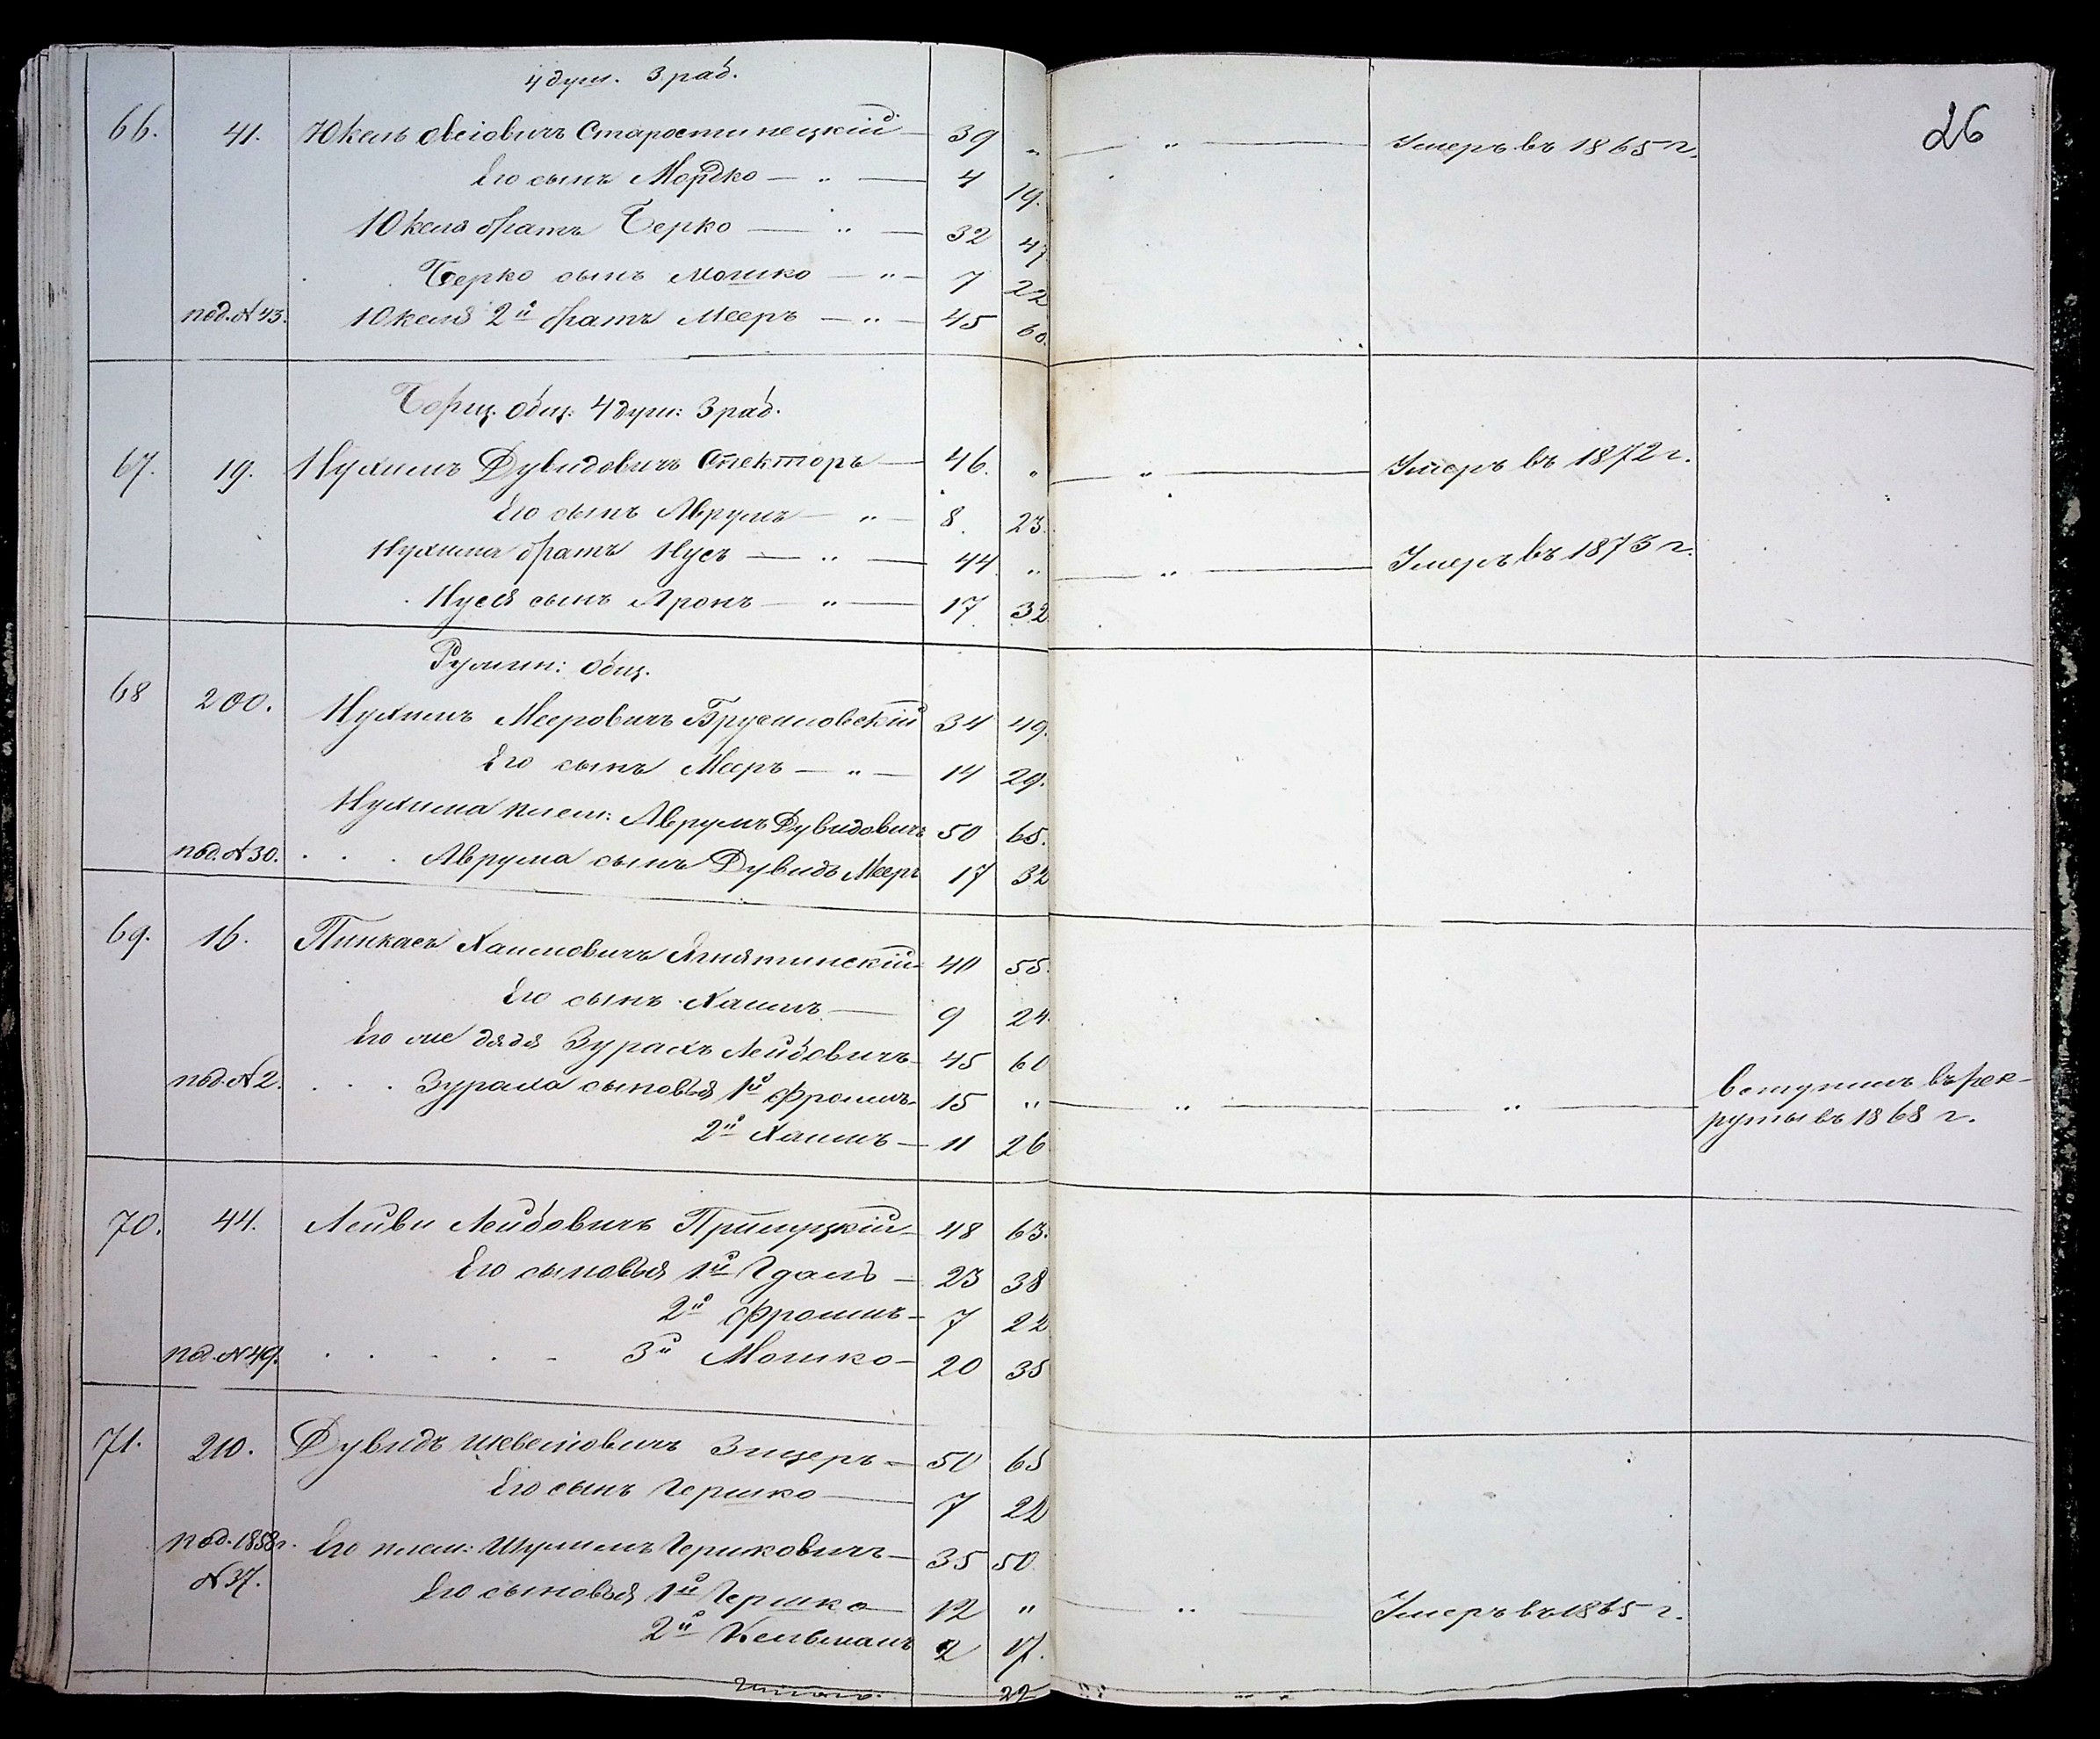 26
4 душ. 3 раб.
66. 41. Юкель Овсіовичъ Старостинецкій — 39 „ — „ — Умеръ въ 1865 г.
Его сынъ Мордко — „ — 4 19.
Юкеля братъ Берко — „ — 32 47
Берко сынъ Мошко — „ — 7 22
под. № 43. Юкеля 2й братъ Мееръ — „ — 45 60.
Борщ. Общ: 4 душ: 3 раб.
67. 19. Нухимъ Дувидовичъ Спекторъ — 46. „ — „ — Умеръ въ 1872 г.
Его сынъ Аврумъ — „ — 8. 23.
Нухима братъ Нусъ — „ — 44 „ — „ — Умеръ въ 1873 г.
Нуся сынъ Аронъ — „ — 17. 32
Ружин: Общ.
68 200. Нухимъ Мееровичъ Брусиловскій 34 49.
Его сынъ Мееръ — „ — 14 29.
Нухима плем: Аврумъ Дувидовичъ 50 65.
под. № 30. . . . Аврума сынъ Дувидъ Мееръ 17 32
69. 16. Пинкасъ Хаимовичъ Ягнятинскій — 40 55.
Его сынъ Хаимъ — 9 24.
Его же дядя Зурахъ Лейбовичъ — 45 60
под. № 2. . . . Зураха сыновья 1й Фроимъ — 15 „ — „ — „ — вступилъ въ рек-
руты въ 1868 г.
2й Хаимъ — 11 26
70. 44. Лейви Лейбовичъ Прилуцкій — 48 63.
Его сыновья 1й Гдаль — 23 38
2й Фроимъ — 7 22
под. № 49. . . . . . 3й Мошко — 20 35
71. 210. Дувидъ Шевелiовичъ Зицеръ — 50 65
Его сынъ Гершко — 7 22
под. 1858 г. Его плем: Шулимъ Гершковичъ — 35 50
№ 37.
Его сыновья 1й Гершко — 12 „ — „ — Умеръ въ 1865 г.
2й Кельманъ 2 17.
22